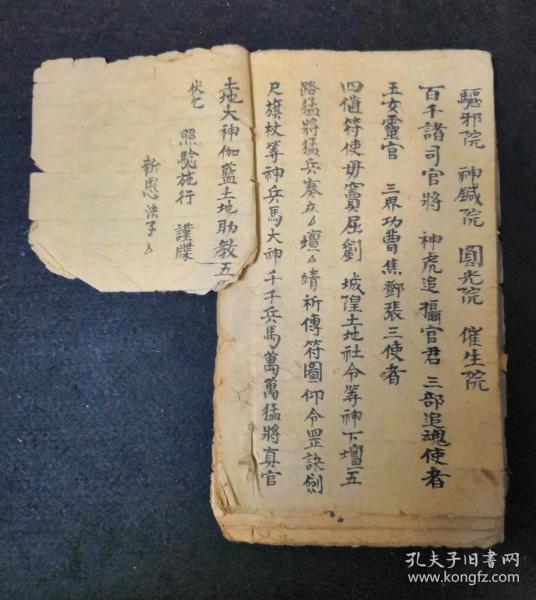 驅邪院 神鍼院 圓光院 催生院
百千諸司官將 神虎追攝官君 三部追魂使者
玉女靈官 三界功曹焦鄧張三使者
四值符使毋竇屈劉 城隍土地社令等神下壇五
路猛將猛兵奏立厶壇厶靖祈傳符圖仰令罡訣劍
尺旗杖等神兵馬大神千千兵馬萬萬猛將真官
土地大神伽藍土地助教五
伏乞 照驗施行 謹牒
新恩法子厶
孔夫子旧书网
www.kongfz.com